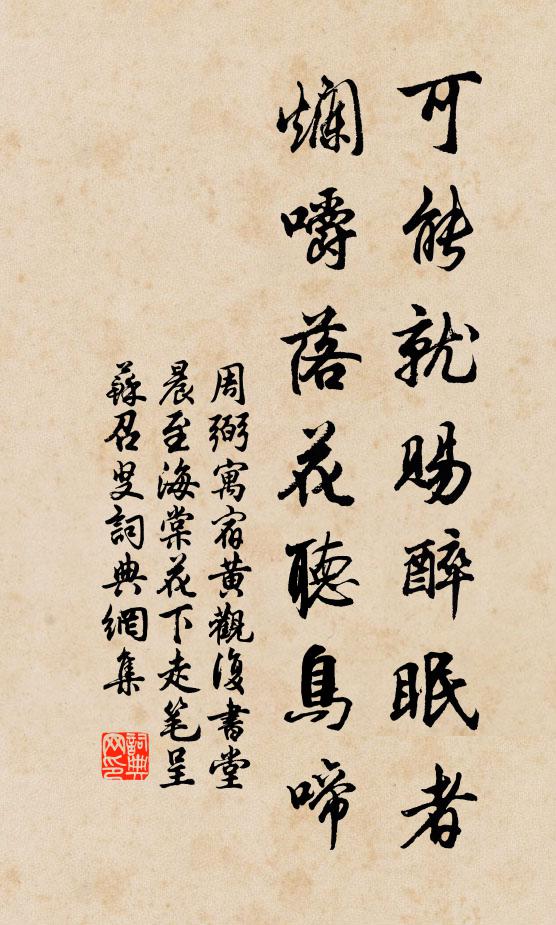 可能就賜醉眠者
爛嚼落花聽鳥啼
周弼寓宿黃觀復書堂
晨至海棠花下走笔呈
蘇召叟詞典網集
詞典网印